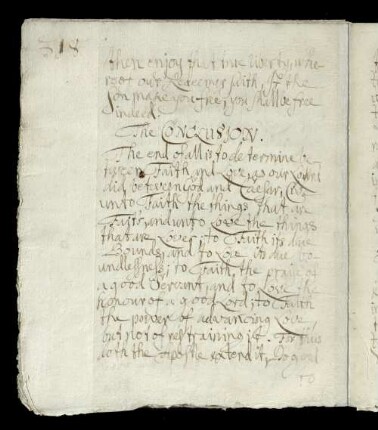 318
then enjoy that true liberty, whe-
reof our Redeemer saith, If the
Son make you free, you shall be free
indeed.
The CONCLUSION.
The end of all is to determine be-
tween Faith and Love, as our Lord
did between God and Caesar, Give
unto Faith the things that are
Faiths, and unto Love the things
that are Loves; to Faith its due
Bounds, and to Love its due bo-
undlessness; to Faith, the praise of
a good Servant, and to Love the
honour of a good Lord; to Faith
the power of advancing Love
but not of restraining it. For thus
doth the Apostle extend it, to good
to